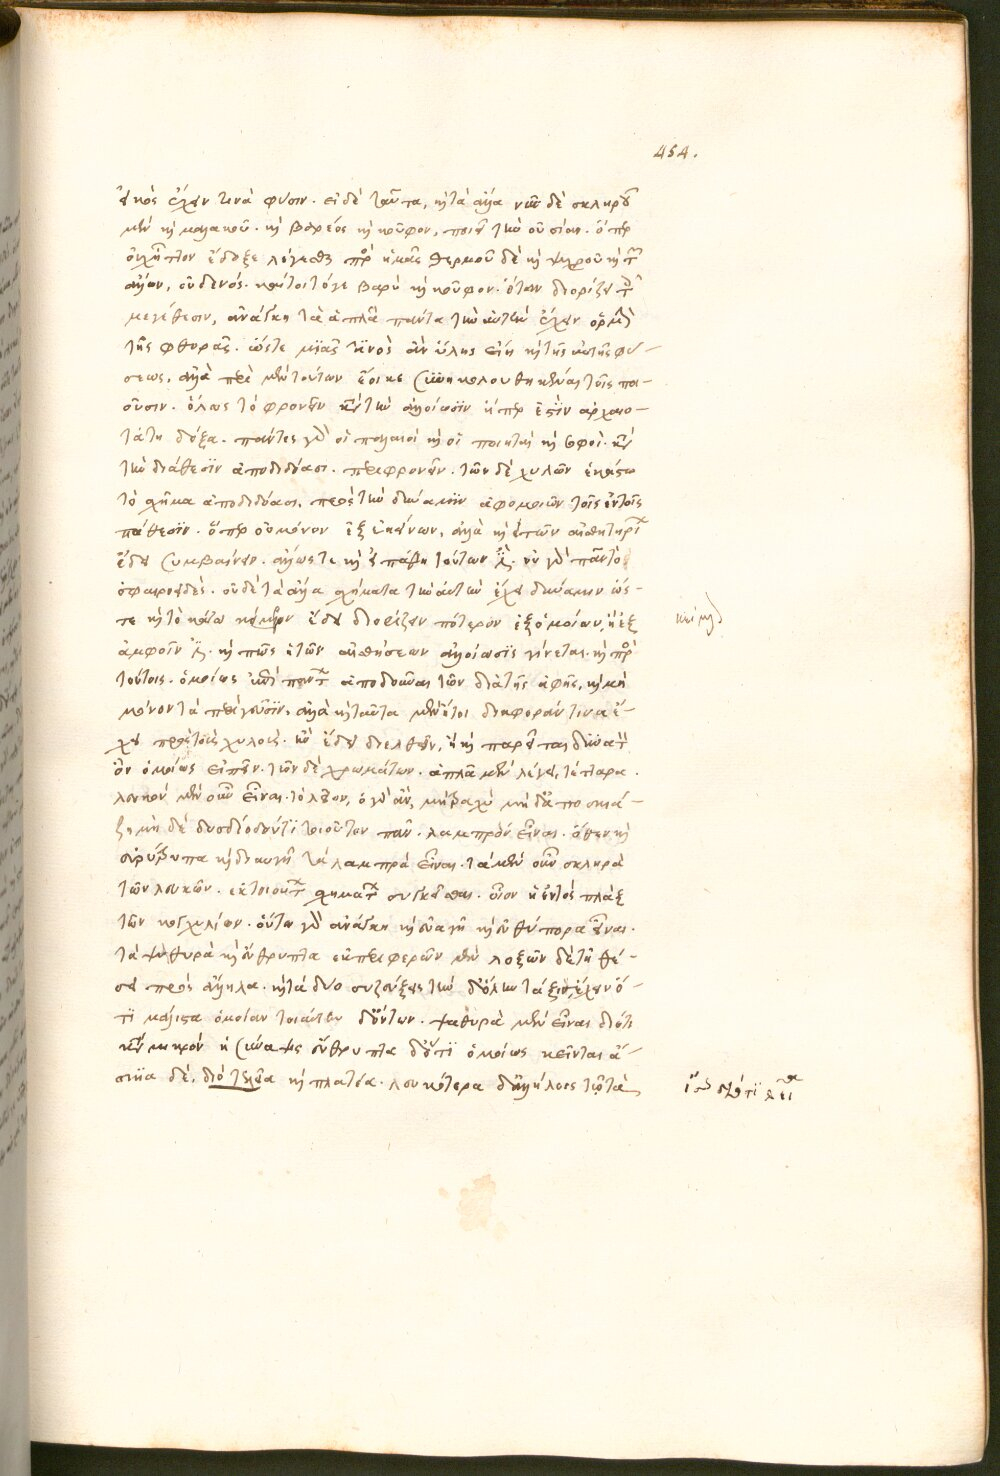 454.
εἰκὸς ἔχειν τινὰ φύσιν. εἰ δὲ ταῦτα, καὶ τὰ ἄλλα νῦν δὲ σκληροῦ
μὲν καὶ μαλακοῦ. καὶ βαρέος καὶ κούφου, ποιεῖ τὴν οὐσίαν. ὅπερ
οὐχ ἧττον ἔδοξε λέγεσθαι πρὸς ἡμᾶς θερμοῦ δὲ καὶ ψυχροῦ καὶ τῶν
ἄλλων, οὐδενός. καίτοι τόγε βαρὺ καὶ κοῦφον. ὅταν διορίζει τοῖς
μεγέθεσιν, ἀνάγκη τὰ ἁπλᾶ πάντα τὴν αὐτὴν ἔχειν ὁρμὴν
τῆς φθορᾶς. ὥστε μϊᾶς τϊνὸς ἂν ὕλης εἴη καὶ τῆς αὐτῆς φύ-
σεως, ἀλλὰ περὶ μὲν τούτων ἔοικε συνηκολουθηκέναι τοῖς ποι-
οῦσιν. ὅλως τὸ φρονεῖν κατὰ τὴν ἀλλοίωσϊν ἥπερ ἐστϊν ἀρχαιο-
τάτη δόξα. πάντες γὰρ οἱ παλαιοὶ καὶ οἱ ποιηταὶ καὶ σοφοὶ. κατὰ
τὴν διάθεσϊν ἀποδιδόασι. περιφρονεῖν. τῶν δὲ χυλῶν ἑκάστω
τὸ σχῆμα ἀποδιδόασι. πρὸς τὴν δύναμϊν ἀφομοιῶν τοῖς ἐντοῖς
πάθεσϊν. ὅπερ οὐμόνον ἐξ ἐκείνων, ἀλλὰ καὶ ἐκτῶν αἰσθητηρίων
ἔδει συμβαίνειν. ἄλλως τε καὶ εἰ πάθη τούτων ἐστί. οὐ γὰρ πᾶν τὸ
σφαιροειδὲς. οὐδὲ τὰ ἄλλα σχήματα τὴν αὐτὴν ἔχει δύναμιν ὥσ-
τε καὶ τὸ κάτω ἔδει διορίζειν πότερον ἐξ ὁμοίων, ἢ ἐξ
ἀμφοῖν ἐστί. καὶ πῶς ἡ τῶν αἰσθήσεων ἀλλοίωσϊς γίνεται. καὶ πρὸς
τούτοις. ὁμοίως ἐπὶ πάντων ἀποδοῦναι τῶν διὰ τῆς ἁφῆς, καὶ μὴ
μόνον τὰ περὶ γεῦσϊν. ἀλλὰ καὶ ταῦτα μὲν ἤτοι διαφοράν τινα ἔ-
χει πρὸς τοὺς χυλούς. ἣν ἔδει διελθεῖν, ἢ καὶ παρεῖται δϋνατὸν
ὂν ὁμοίως εἰπεῖν. τῶν δὲ χρωμάτων. ἁπλᾶ μὲν λέγει, τέτταρα.
λευκὸν μὲν οὖν εἶναι. τὸ λεῖον, ὁ γὰρ ἂν, μὴ τραχὺ μὴ δἂ ποσκιά-
ζῃ μὴ δὲ δυσδίοδον τοιοῦτον πᾶν. λαμπρὸν εἶναι. ὅθεν καὶ
εὐθύτρυπα καὶ διαυγῆ τὰ λαμπρὰ εἶναι. τὰ μὲν οὖν σκληρὰ
τῶν λευκῶν. ἐκ τοιούτων σχημάτων συγκεῖσθαι. οἷον ἡ ἐντὸς πλὰξ
τῶν κογχυλίων. οὕτω γὰρ ἀνάγκη καὶ εὐαγῆ καὶ εὐθύπορα εἶναι.
τὰ ψαθυρὰ καὶ εὔθρυπτα ἐκ περιφερῶν μὲν λοξῶν δὲ τῆ θέ-
σει πρὸς ἄλληλα. καὶ τὰ δύο συζεύξεις τὴν δ' ὅλην τάξιν ἔχειν ὅ-
τϊ μάλιστα ὁμοίαν τοιούτων δ' ὄντων. ψαθυρὰ μὲν εἶναι διότι
κατὰ μικρὸν ἡ σύναψις εὔθρυπτα δ' ὅτϊ ὁμοίως κεῖνται ἄ-
σκϊα δὲ, διότι λεῖα καὶ πλατέα. λευκότερα δ' ἀλλήλοις τῶ τὰ